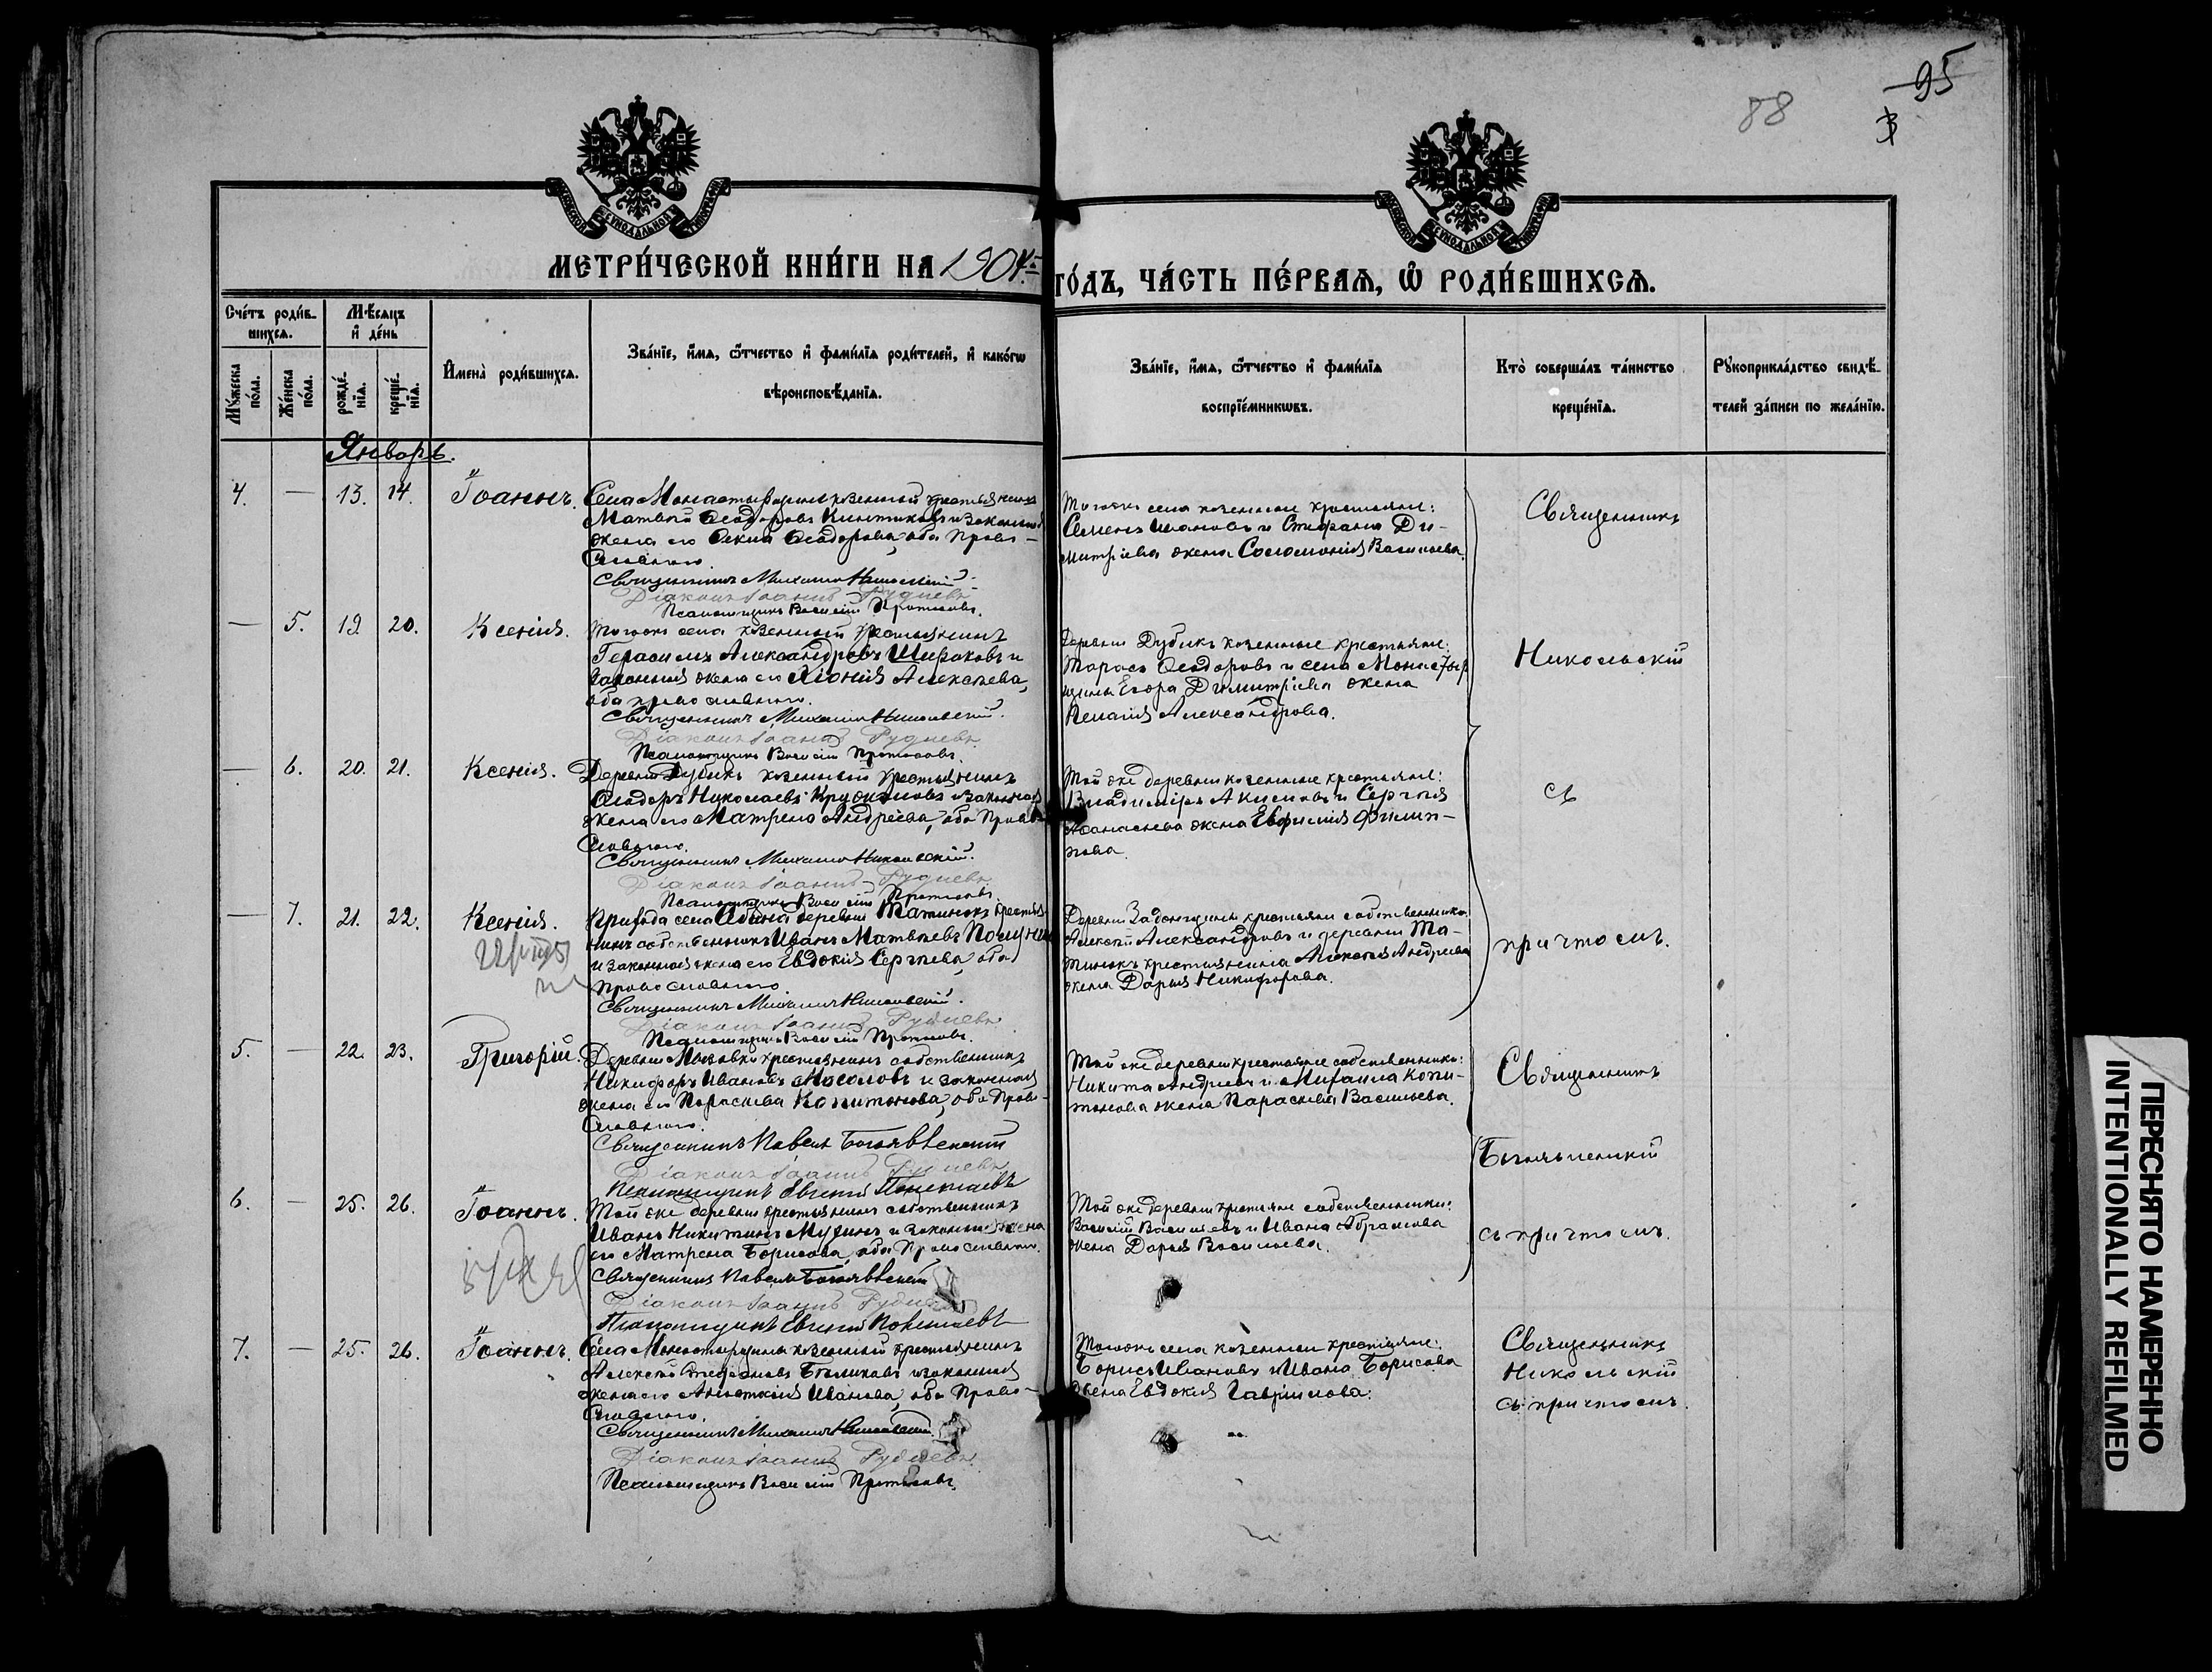 95
88
МЕТРИ́ЧЕСКОЙ КНИ́ГИ НА 1904 ГО́ДЪ, ЧА́СТЬ ПЕ́РВАЯ, Ѡ РОДИ́ВШИХСЯ.
Сче́тъ роди́в-
шихся.
Му́жеска по́ла.
Же́нска по́ла.
Мѣ́сяцъ и҆ де́нь
рожде́нїя.
креще́нїя.
И҆мена̀ роди́вшихся.
Зва́нїе, и҆́мя, ѻ҆́тчество и҆ фами́лїя роди́телей, и҆ како́гѡ
вѣроисповѣ́данїя.
Зва́нїе, и҆́мя, ѻ҆́тчество и҆ фами́лїя
воспрїе́мникѡвъ.
Кто̀ соверша́лъ та́инство
креще́нїя.
Рꙋкоприкла́дство свидѣ́-
телей за́писи по жела́нїю.
Январь.
4. — 13. 14. Іоаннъ.
Села Монастырщины казенный крестьянинъ
Матвѣй Ѳеодоровъ и законная
жена его Ѳекла Ѳеодорова, оба Право-
славного.
Священникъ Михаилъ Никольскій.
Діаконъ Іоаннъ Рудневъ
Псаломщикъ Василій Протасовъ.
Тогоже села казенные крестьяне:
Семенъ Ивановъ и Стефана Ди-
митріева жена Соломонія Васильева.
Священникъ
— 5. 19. 20. Ксенія.
Тогоже села казенный крестьянинъ
Герасимъ Александровъ Ширяковъ и
законная жена его Алексѣева,
оба православного.
Священникъ Михаилъ Никольскій.
Діаконъ Іоаннъ Рудневъ
Псаломщикъ Василій Протасовъ.
Деревни Дубикъ казенные крестьяне:
Тарасъ Ѳеодоровъ и села Монастыр-
щины Егора Димитріева жена
Пелагія Александрова.
Никольскій
— 6. 20. 21. Ксенія.
Деревни Дубикъ казенный крестьянинъ
Ѳеодоръ Николаевъ и законная
жена его Матрена Андреева, оба Право-
славного.
Священникъ Михаилъ Никольскій.
Діаконъ Іоаннъ Рудневъ
Псаломщикъ Василій Протасовъ.
Той же деревни казенные крестьяне:
Владиміръ Акимовъ и Сергѣя
Аѳанасьева жена Евфимія Филип-
пова.
съ
— 7. 21. 22. Ксенія.
Прихода села деревни Татинокъ крестья-
нинъ собственникъ Иванъ Матвѣевъ
и законная жена его Евдокія Сергѣева, оба
православного.
Священникъ Михаилъ Никольскій.
Діаконъ Іоаннъ Рудневъ
Псаломщикъ Василій Протасовъ.
Деревни Задонщины крестьянинъ собственникъ
Алексѣй Александровъ и деревни Та-
тинокъ крестьянина Алексѣя Андреева
жена Дарья Никифорова.
причтомъ.
5. — 22. 23. Григорій.
Деревни крестьянинъ собственникъ
Никифоръ Ивановъ Масоловъ и законная
жена его Параскева Капитонова, оба Право-
славного.
Священникъ Павелъ Богоявленскій
Діаконъ Іоаннъ Рудневъ
Псаломщикъ Евгеній
Той же деревни крестьяне собственники:
Никита Андреевъ и Михаила Капи-
тонова жена Параскева Васильева.
Священникъ
Богоявленскій
6. — 25. 26. Іоаннъ.
Той же деревни крестьянинъ собственникъ
Иванъ Никитинъ и законная жена
его Матрена Борисова, оба Православного.
Священникъ Павелъ Богоявленскій
Діаконъ Іоаннъ Рудневъ
Псаломщикъ Евгеній
Той же деревни крестьяне собственники:
Василій Васильевъ и Ивана Абрамова
жена Дарья Васильева.
съ причтомъ.
7. — 25. 26. Іоаннъ.
Села Монастырщины казенный крестьянинъ
Алексѣй Стефановъ Бѣликовъ и законная
жена его Иванова, оба Право-
славного.
Священникъ Михаилъ Никольскій.
Діаконъ Іоаннъ Рудневъ
Псаломщикъ Василій Протасовъ.
Тогоже села казенные крестьяне:
Борисъ Ивановъ и Ивана Борисова
жена Евдокія Гавриилова.
Священникъ
Никольскій
съ причтомъ.
ПЕРЕСНЯТО НАМЕРЕННО
INTENTIONALLY REFILMED